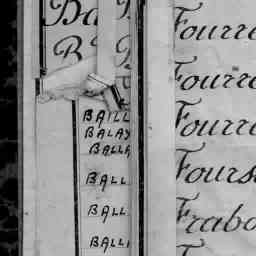 Ba
B
BAILL
BALAY
BALLA
BALL
BALL
BALLI
Fourre
Fourre
Fourre
Fours
Frabo